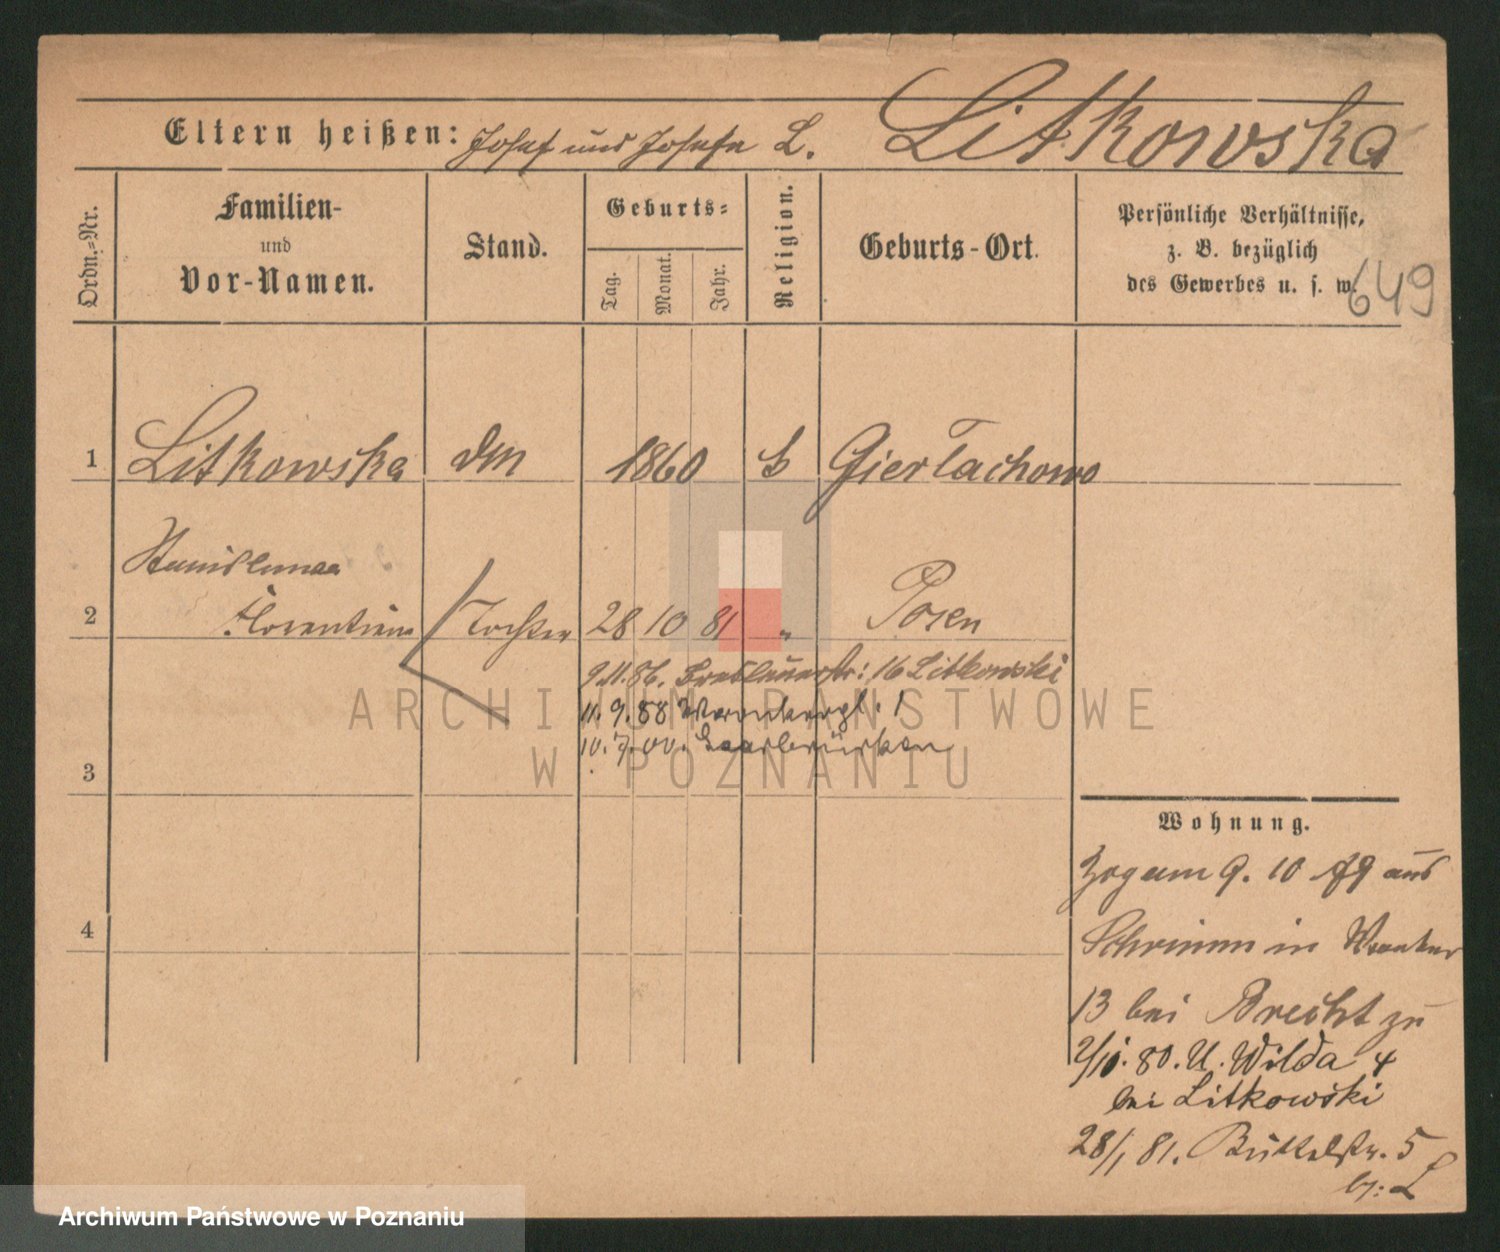 Eltern heißen: Josef und Josefa L. Litkowska
Ordn.-Nr.
Familien-
und
Vor-Namen.
Stand.
Geburts-
Tag.
Monat.
Jahr.
Religion.
Geburts-Ort.
Persönliche Verhältnisse,
z. B. bezüglich
des Gewerbes u. s. w.
649
1 Litkowska 1860 Gierlachowo
Stanislawa
2 Florentina Tochter 28 10 81 " Posen
9.11.86. Breslauerstr: 16 Litkowski
11. 9. 88 Wronkerpl. 1
10. 7. 00. Saarbrücken
3
4
Wohnung.
Zog am 9. 10 79 aus
Schrimm in Wronker
13 bei Brecht zu
2/10. 80. U. Wilda 4
bei Litkowski
28/1 81. Büttelstr. 5
b: L
ARCHIWUM PAŃSTWOWE
W POZNANIU
Archiwum Państwowe w Poznaniu